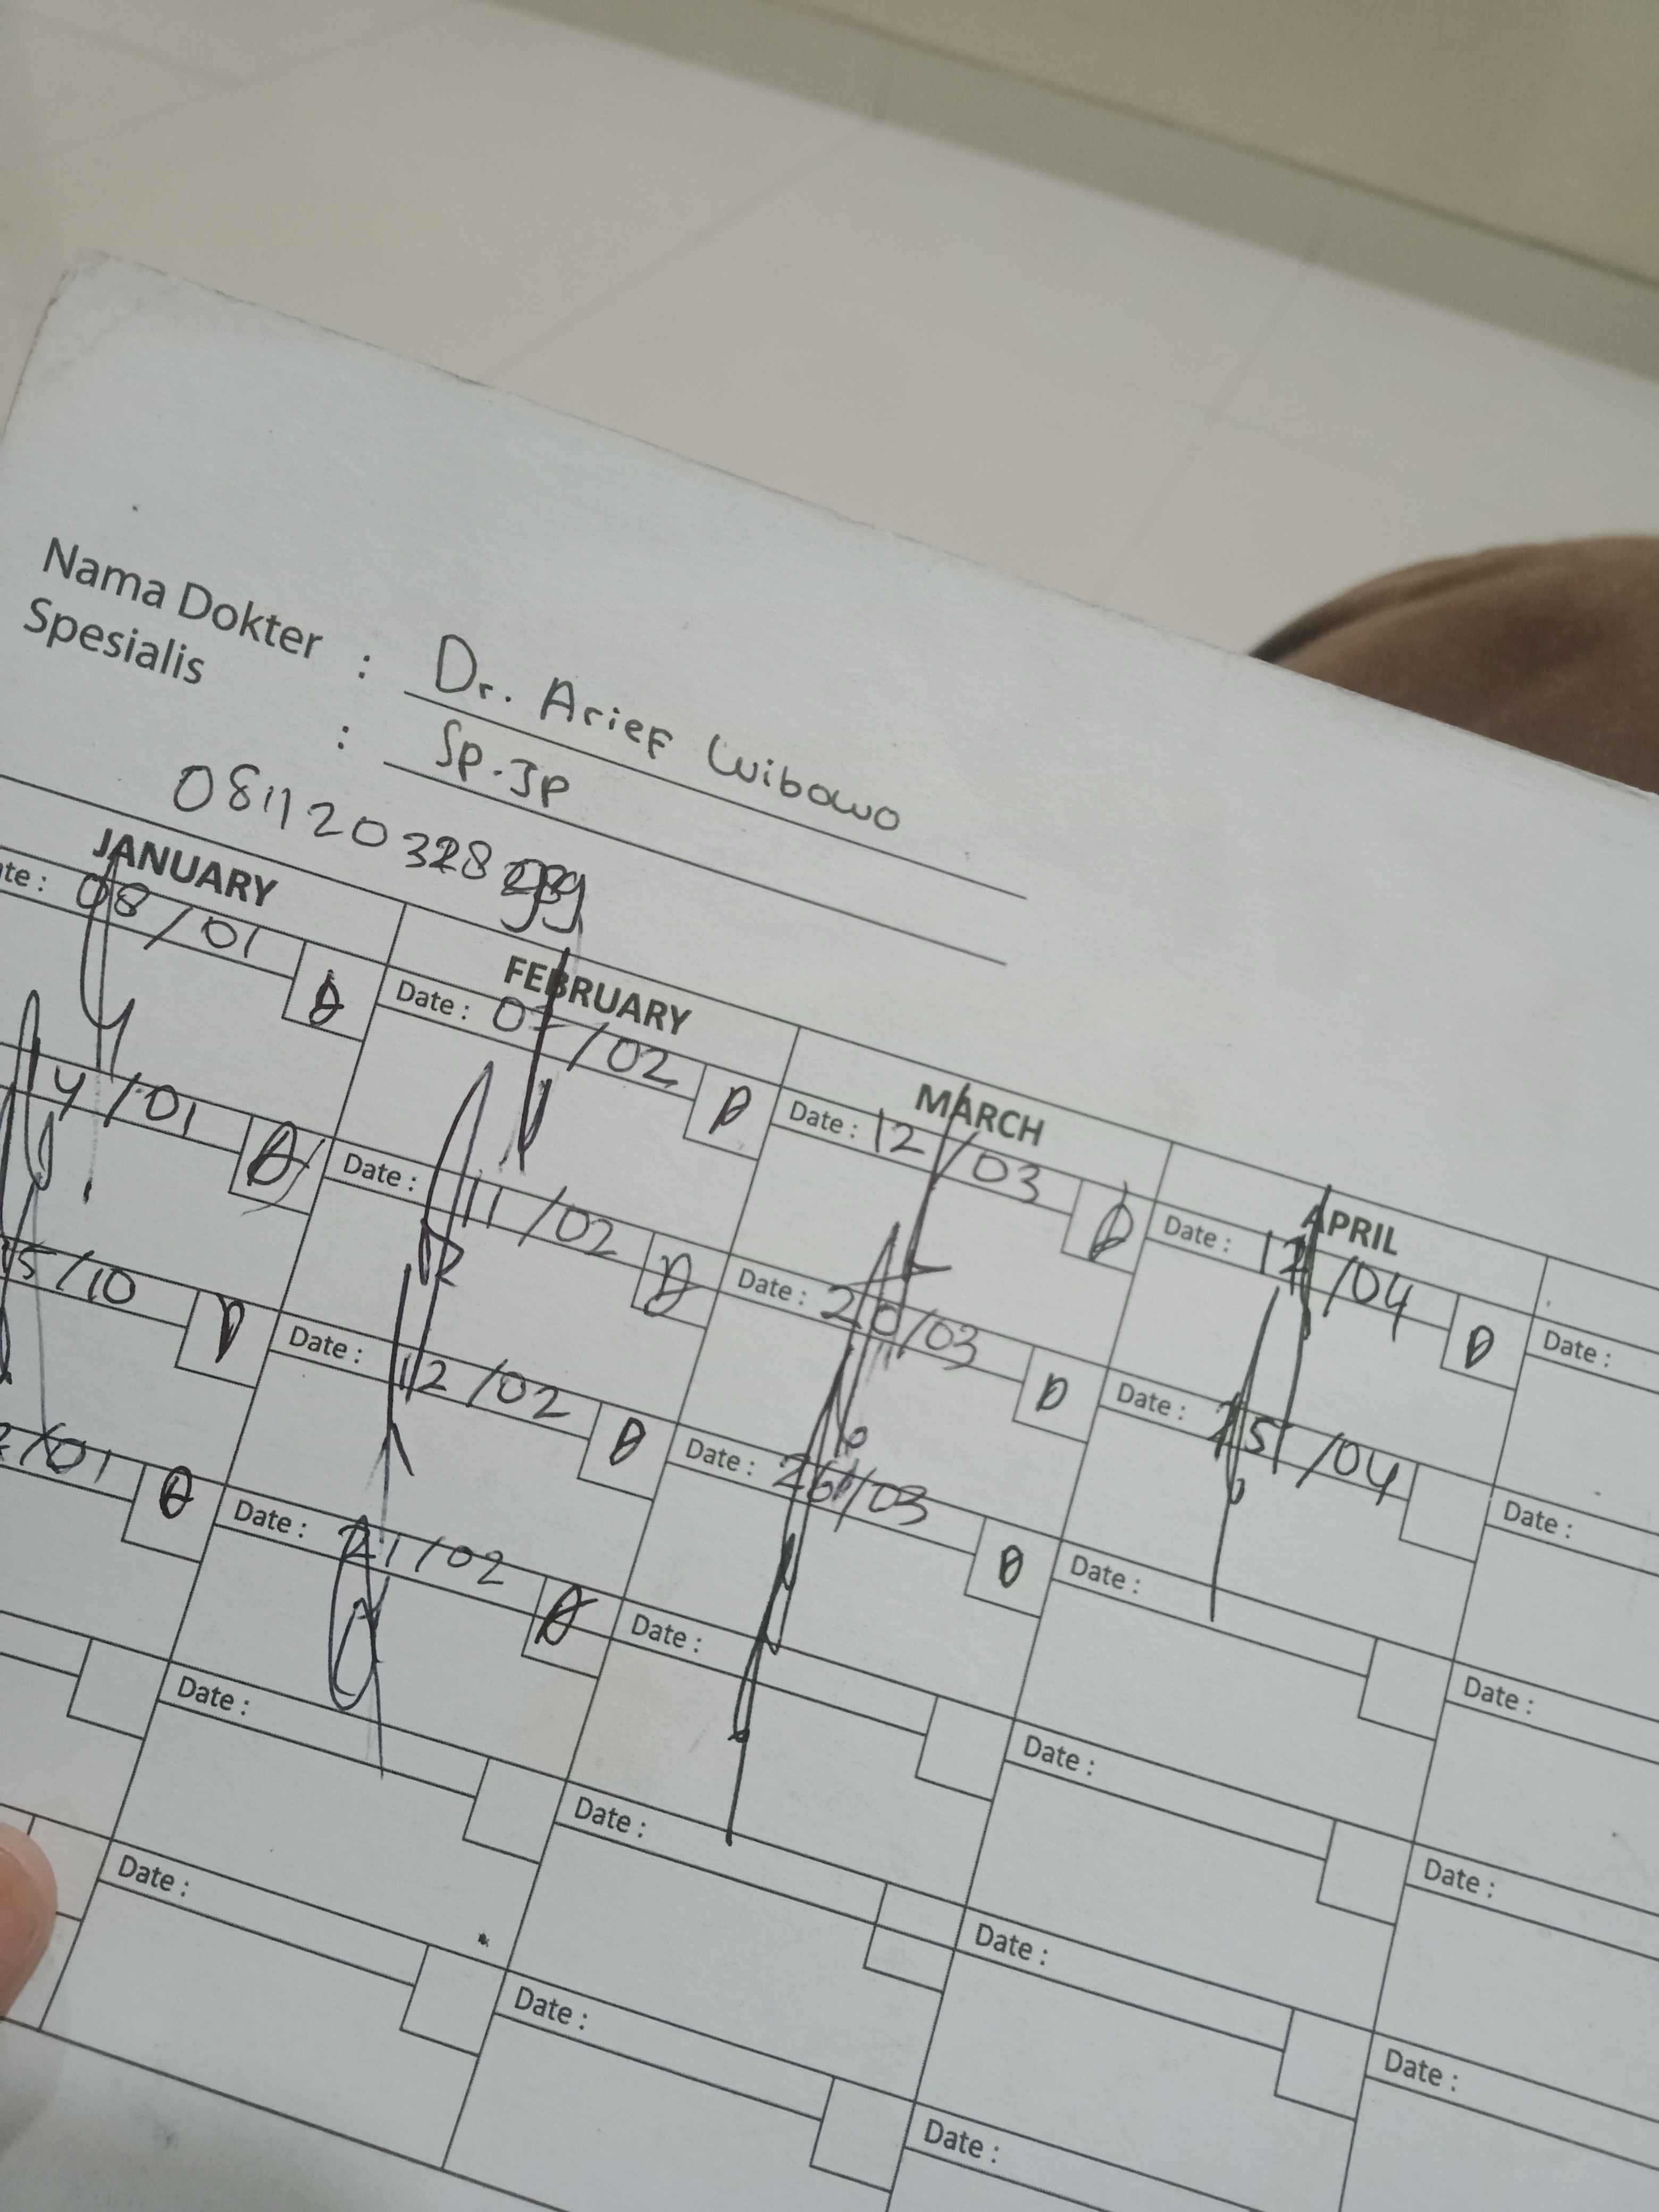 Nama Dokter : Dr. Arief Wibowo
Spesialis : Sp.JP
081120328
JANUARY FEBRUARY MARCH APRIL
te : 08/01 Date : 07/02 Date : 12/03 Date : 12/04 Date :
4/01 Date : 11/02 Date : 20/03 Date : 15/04 Date :
15/10 Date : 12/02 Date : 26/03 Date : Date :
2/01 Date : 21/02 Date : Date : Date :
Date : Date : Date : Date :
Date : Date : Date :